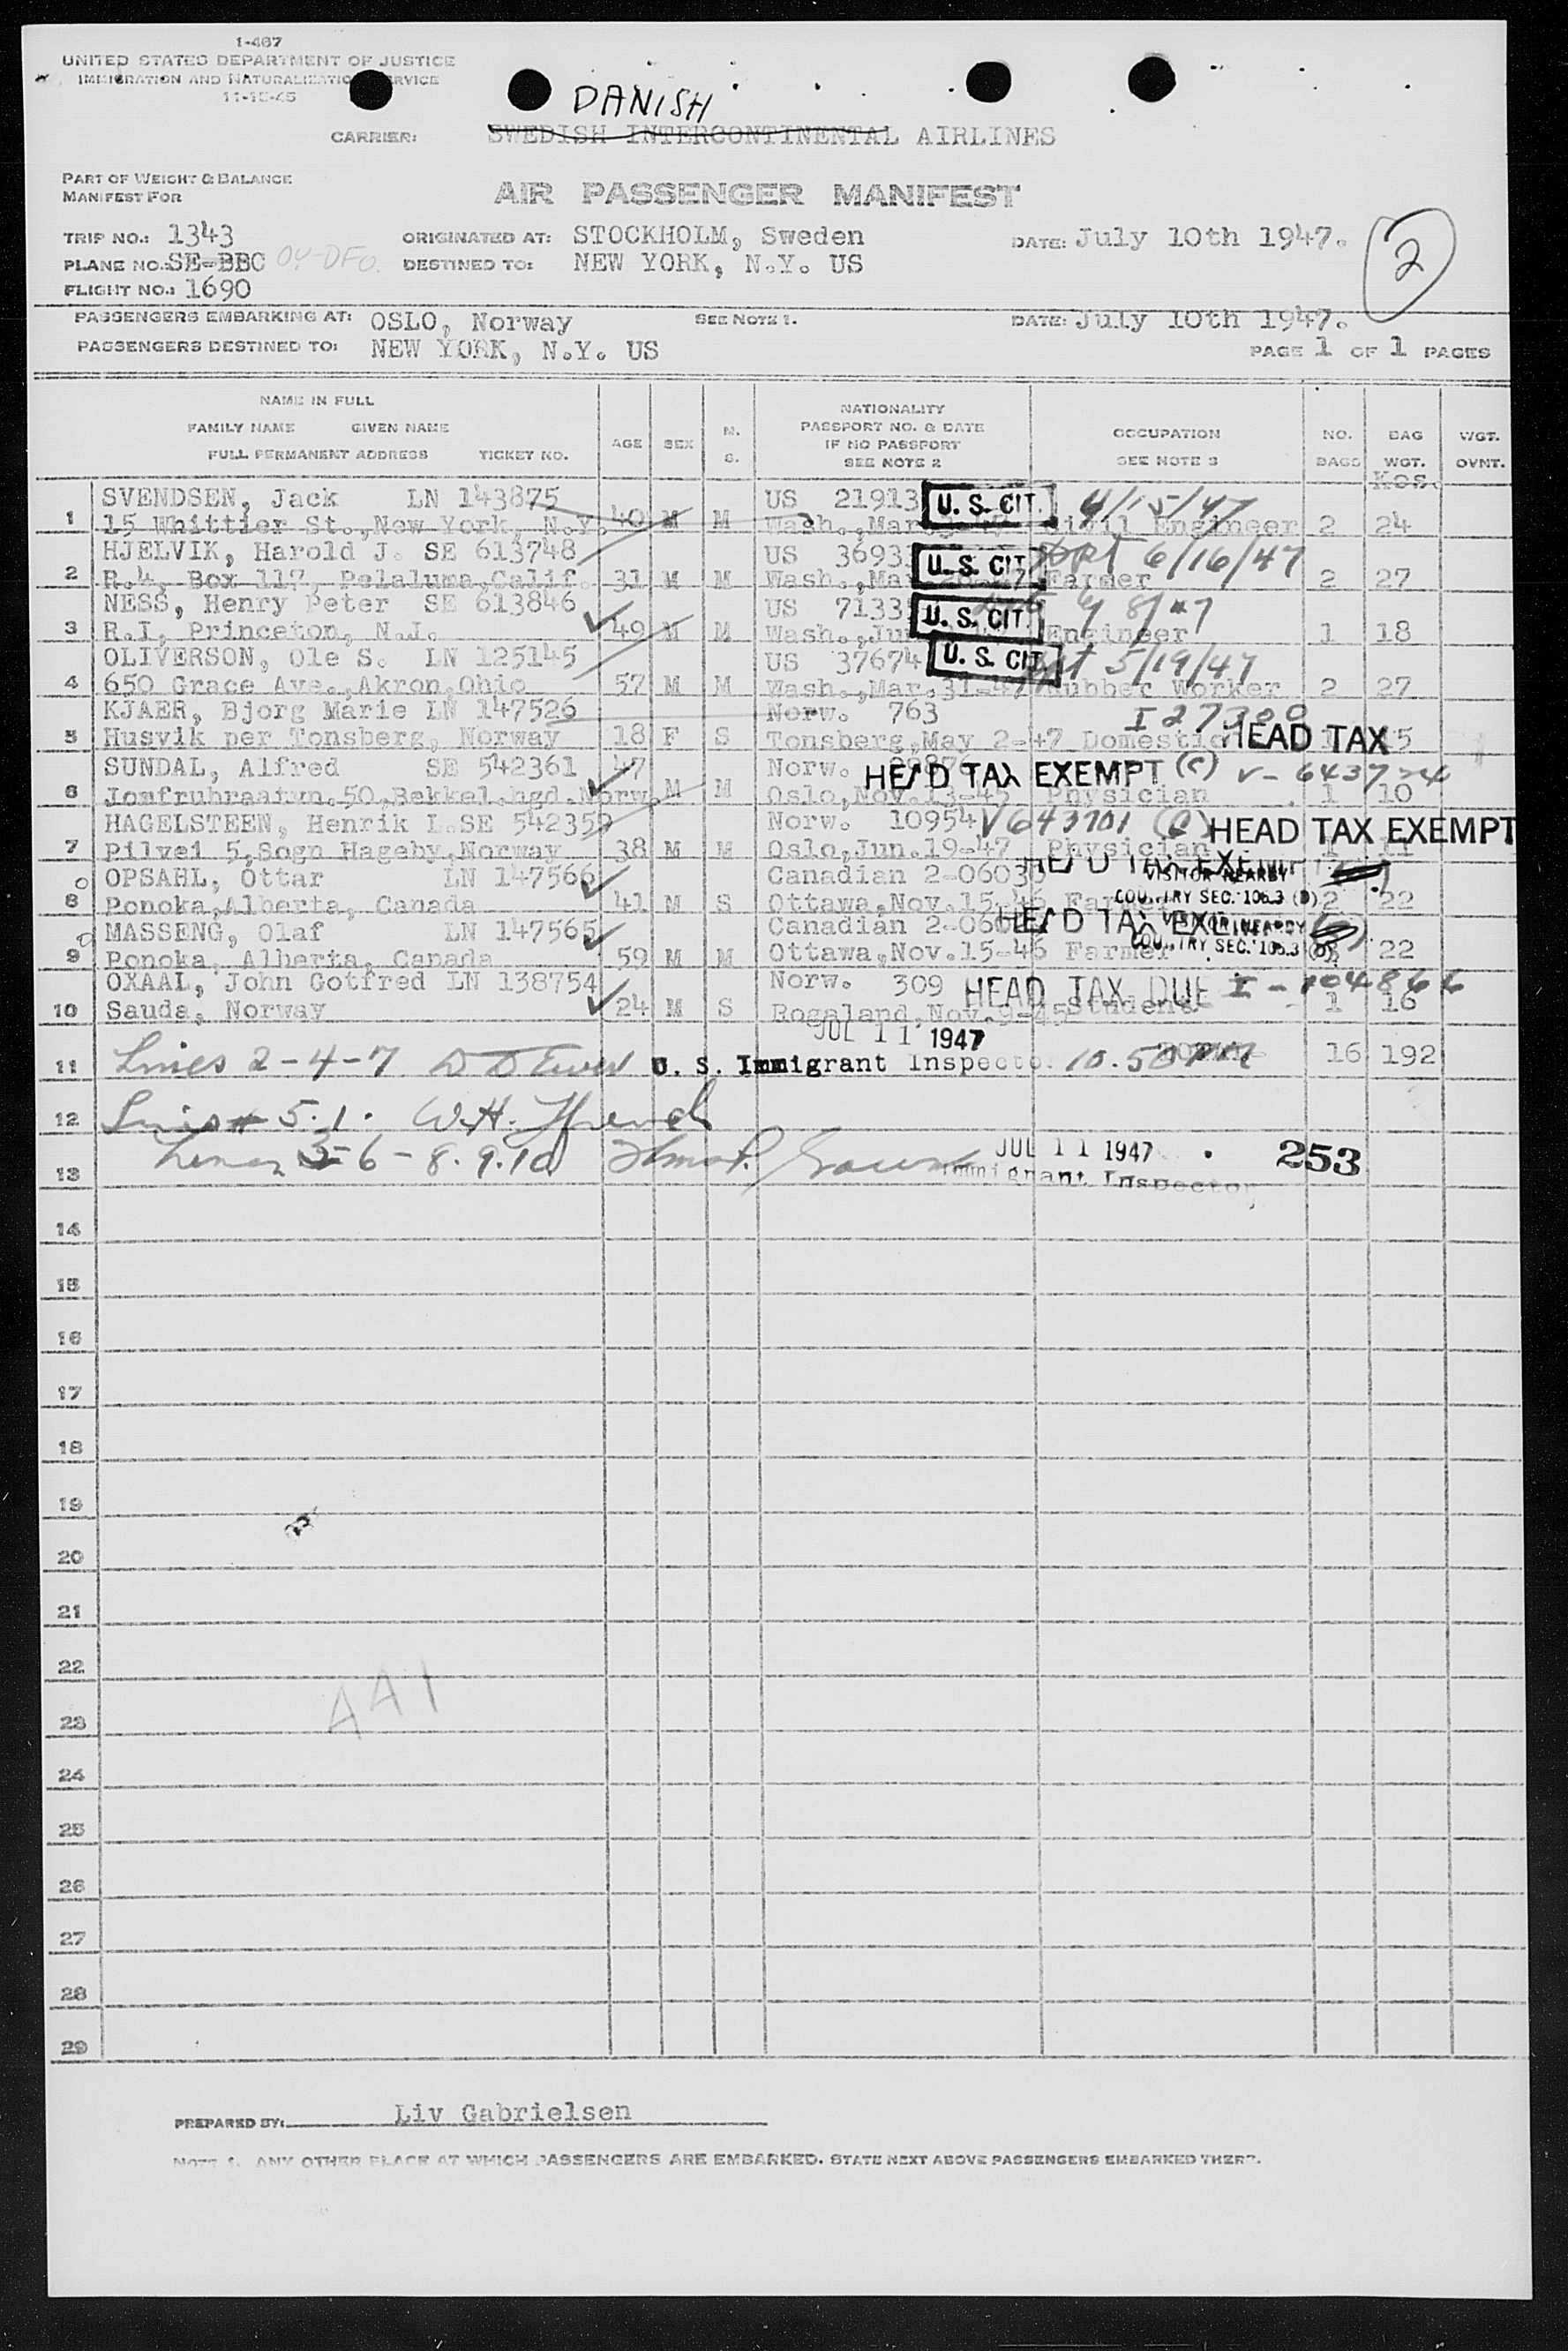 1-467
UNITED STATES DEPARTMENT OF JUSTICE
IMMIGRATION AND NATURALIZATION SERVICE
11-15-45
DANISH
CARRIER: SWEDISH INTERCONTINENTAL AIRLINES
PART OF WEIGHT & BALANCE
MANIFEST FOR
AIR PASSENGER MANIFEST
TRIP NO.: 1343 ORIGINATED AT: STOCKHOLM, Sweden DATE: July 10th 1947.
2
PLANE NO.: SE-BBC OY-DFO. DESTINED TO: NEW YORK, N.Y. US
FLIGHT NO.: 1690
PASSENGERS EMBARKING AT: OSLO, Norway SEE NOTE 1. DATE: July 10th 1947.
PASSENGERS DESTINED TO: NEW YORK, N.Y. US PAGE 1 OF 1 PAGES
NAME IN FULL
FAMILY NAME GIVEN NAME
FULL PERMANENT ADDRESS TICKET NO.
AGE SEX M. S.
NATIONALITY
PASSPORT NO. & DATE
IF NO PASSPORT
SEE NOTE 2
OCCUPATION
SEE NOTE 3
NO. BAGS BAG WGT. WGT. OVNT.
Kos.
SVENDSEN, Jack LN 143875 US 21913 U. S. CIT. 4/15/47
1 15 Whittier St.,New York, N.Y. 40 M M Wash.,Mar Civil Engineer 2 24
HJELVIK, Harold J. SE 613748 US 3693 U. S. CIT. 6/16/47
2 R.4, Box 117, Pelaluma,Calif. 31 M M Wash.,May Farmer 2 27
NESS, Henry Peter SE 613846 US 7133 U. S. CIT.
3 R.I, Princeton, N.J. 49 M M Wash.,Jun Engineer 1 18
OLIVERSON, Ole S. LN 125145 US 37674 U. S. CIT. 5/19/47
4 650 Grace Ave.,Akron,Ohio 57 M M Wash.,Mar.31-47 Rubber Worker 2 27
KJAER, Bjorg Marie LN 147526 Norw. 763 I 27300
5 Husvik per Tonsberg, Norway 18 F S Tonsberg,May 2-47 Domestic HEAD TAX 5
SUNDAL, Alfred SE 542361 47 Norw. HEAD TAX EXEMPT (C) V-643724
6 Jomfrubraatvn.50,Bekkel.hgd.Norw. M M Oslo,Nov.13-45 Physician 1 10
HAGELSTEEN, Henrik L.SE 542359 Norw. 10954 V643701 (C) HEAD TAX EXEMPT
7 Pilvei 5,Sogn Hageby,Norway 38 M M Oslo,Jun.19-47 Physician
OPSAHL, Ottar LN 147566 Canadian 2-06030 HEAD TAX EXEMPT VISITOR NEARBY
8 Ponoka,Alberta, Canada 41 M S Ottawa,Nov.15-46 Farmer COUNTRY SEC. 105.3 (D) 2 22
MASSENG, Olaf LN 147565 Canadian HEAD TAX EXEMPT VISITOR NEARBY
9 Ponoka, Alberta, Canada 59 M M Ottawa,Nov.15-46 Farmer COUNTRY SEC. 105.3 22
OXAAL, John Gotfred LN 138754 Norw. 309 HEAD TAX DUE I-104866
10 Sauda, Norway 24 M S Rogaland,Nov.9-45 Student 1 16
JUL 11 1947
11 Lines 2-4-7 U. S. Immigrant Inspector 10.50 PM 16 192
12 5.1. W.H.
13 6-8.9.10 JUL 11 1947 253
Immigrant Inspector
14
15
16
17
18
19
20
21
22
AA1
23
24
25
26
27
28
29
PREPARED BY: Liv Gabrielsen
NOTE 1. ANY OTHER PLACE AT WHICH PASSENGERS ARE EMBARKED. STATE NEXT ABOVE PASSENGERS EMBARKED THERE.